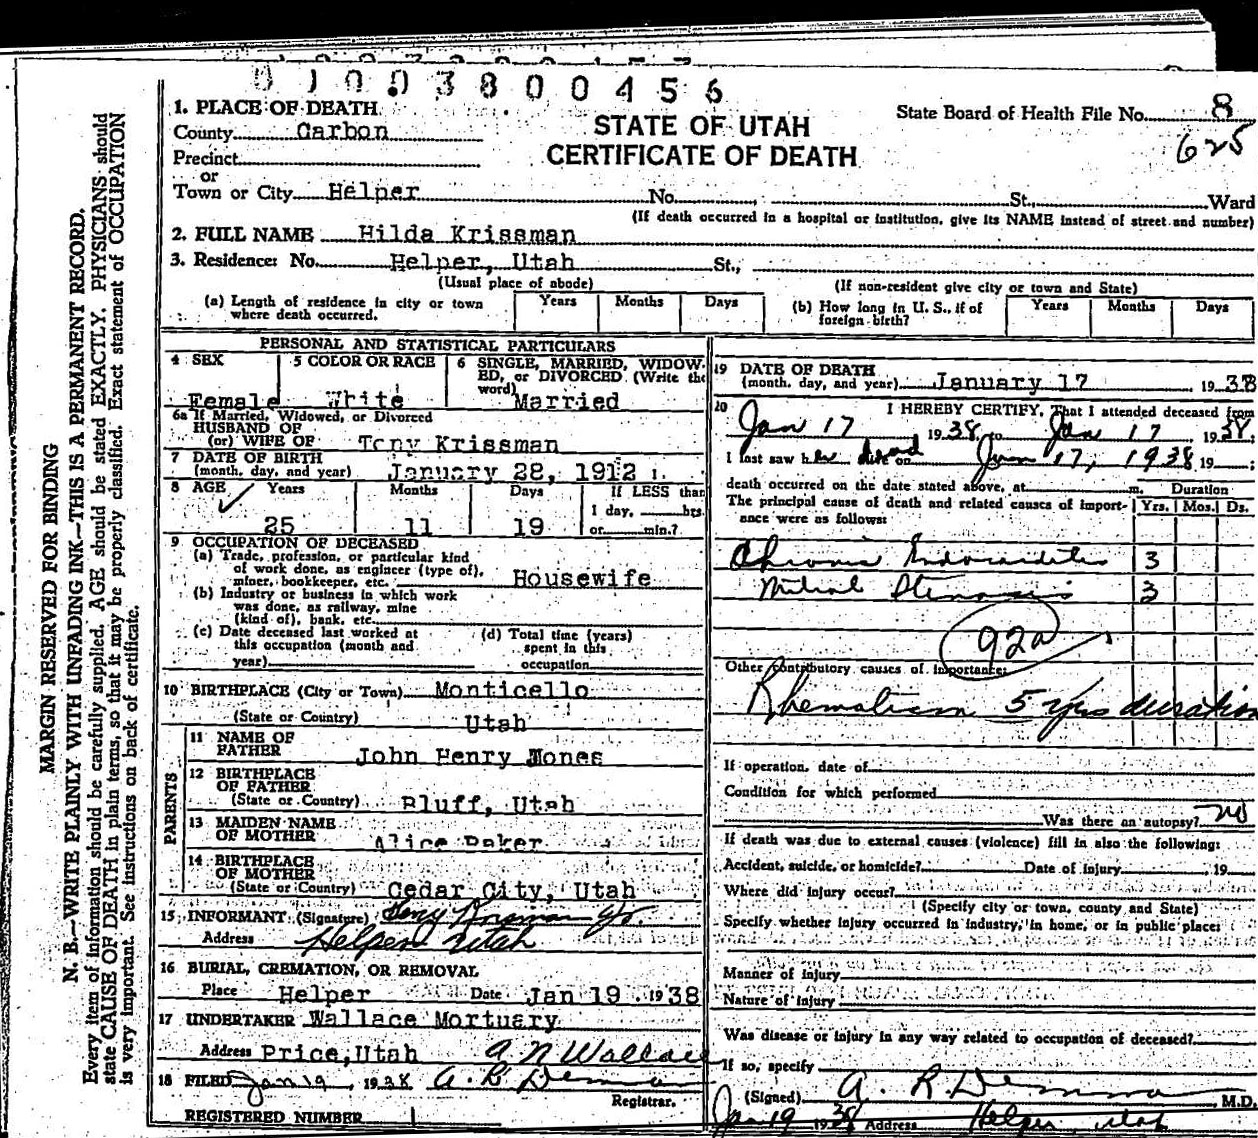 0 1 0 0 3 8 0 0 4 5 6
1. PLACE OF DEATH
County Carbon
Precinct
or
Town or City Helper No. St., Ward
STATE OF UTAH
CERTIFICATE OF DEATH
State Board of Health File No. 8
625
(If death occurred in a hospital or institution, give its NAME instead of street and number)
2. FULL NAME Hilda Krissman
3. Residence: No. Helper, Utah St.,
(Usual place of abode) (If non-resident give city or town and State)
(a) Length of residence in city or town where death occurred. Years Months Days
(b) How long in U. S., if of foreign birth? Years Months Days
PERSONAL AND STATISTICAL PARTICULARS
4 SEX Female
5 COLOR OR RACE White
6 SINGLE, MARRIED, WIDOWED, or DIVORCED (Write the word) Married
6a If Married, Widowed, or Divorced
HUSBAND OF
(or) WIFE OF Tony Krissman
7 DATE OF BIRTH
(month, day, and year) January 28, 1912
8 AGE Years Months Days If LESS than
1 day, hrs.
25 11 19 or min.?
9 OCCUPATION OF DECEASED
(a) Trade, profession, or particular kind
of work done, as engineer (type of),
miner, bookkeeper, etc. Housewife
(b) Industry or business in which work
was done, as railway, mine
(kind of), bank, etc.
(c) Date deceased last worked at
this occupation (month and
year)
(d) Total time (years)
spent in this
occupation
10 BIRTHPLACE (City or Town) Monticello
(State or Country) Utah
PARENTS
11 NAME OF
FATHER John Henry Jones
12 BIRTHPLACE
OF FATHER
(State or Country) Bluff, Utah
13 MAIDEN NAME
OF MOTHER Alice Baker
14 BIRTHPLACE
OF MOTHER
(State or Country) Cedar City, Utah
15 INFORMANT (Signature)
Address Helper Utah
16 BURIAL, CREMATION, OR REMOVAL
Place Helper Date Jan 19 1938
17 UNDERTAKER Wallace Mortuary
Address Price, Utah A N Wallace
18 FILED Jan 19, 1938 A. R. Demman
Registrar.
REGISTERED NUMBER
19 DATE OF DEATH
(month, day, and year) January 17 1938
20 I HEREBY CERTIFY, That I attended deceased from
Jan 17 1938 to Jan 17 1938.
I last saw her alive on dead Jan 17, 1938 19 ;
death occurred on the date stated above, at m. Duration
The principal cause of death and related causes of importance were as follows: Yrs. Mos. Ds.
Chronic Endocarditis 3
Mitral Stenosis 3
92a
Other contributory causes of importance:
Rhematism 5 yrs duration
If operation, date of
Condition for which performed
Was there an autopsy? no
If death was due to external causes (violence) fill in also the following:
Accident, suicide, or homicide? Date of injury 19
Where did injury occur?
(Specify city or town, county and State)
Specify whether injury occurred in industry, in home, or in public place:
Manner of injury
Nature of injury
Was disease or injury in any way related to occupation of deceased?
If so, specify
(Signed) A. R. Demman, M.D.
Jan 19 1938 Address Helper, Utah
MARGIN RESERVED FOR BINDING
N. B.—WRITE PLAINLY WITH UNFADING INK—THIS IS A PERMANENT RECORD.
Every item of information should be carefully supplied. AGE should be stated EXACTLY. PHYSICIANS should
state CAUSE OF DEATH in plain terms, so that it may be properly classified. Exact statement of OCCUPATION
is very important. See instructions on back of certificate.